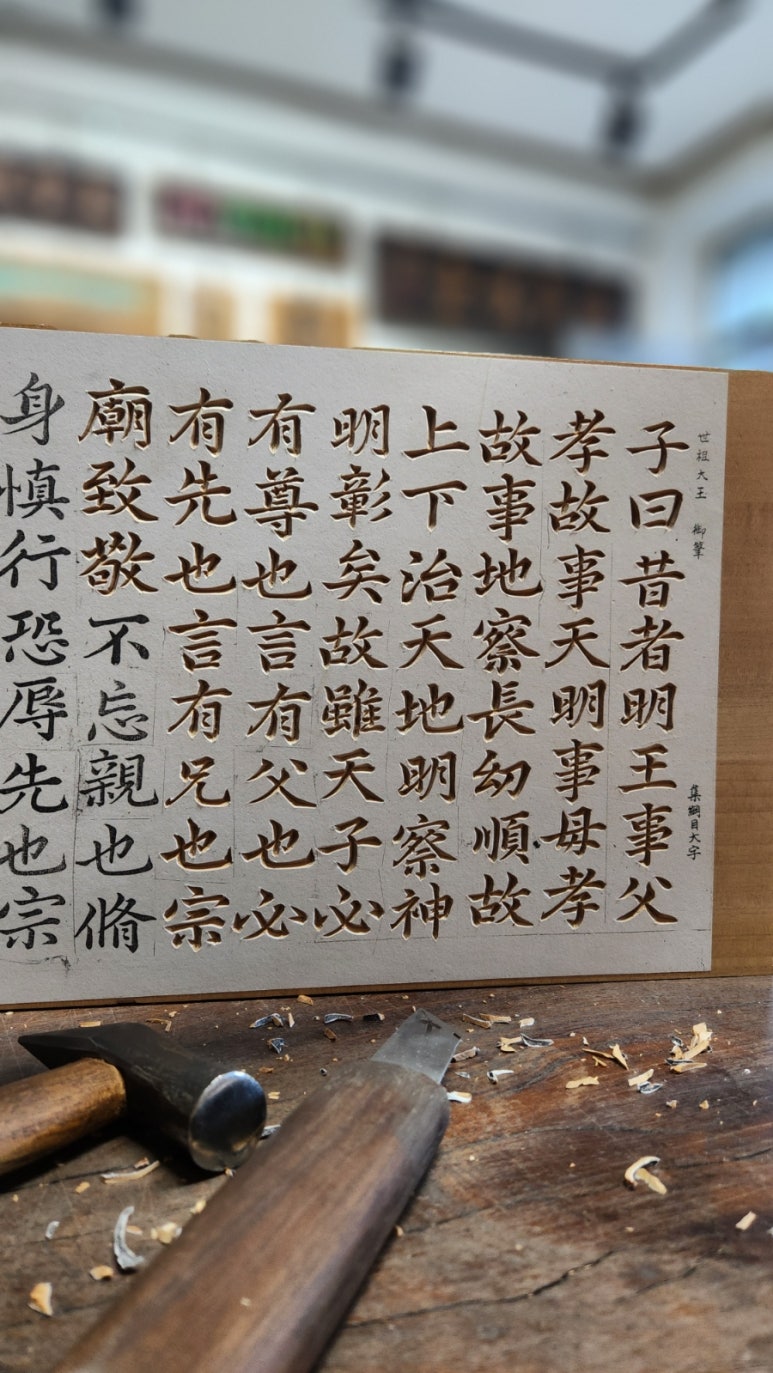 世祖大王 御筆
集綱目大字
子曰昔者明王事父
孝故事天明事母孝
故事地察長幼順故
上下治天地明察神
明彰矣故雖天子必
有尊也言有父也必
有先也言有兄也宗
廟致敬不忘親也脩
身慎行恐辱先也宗